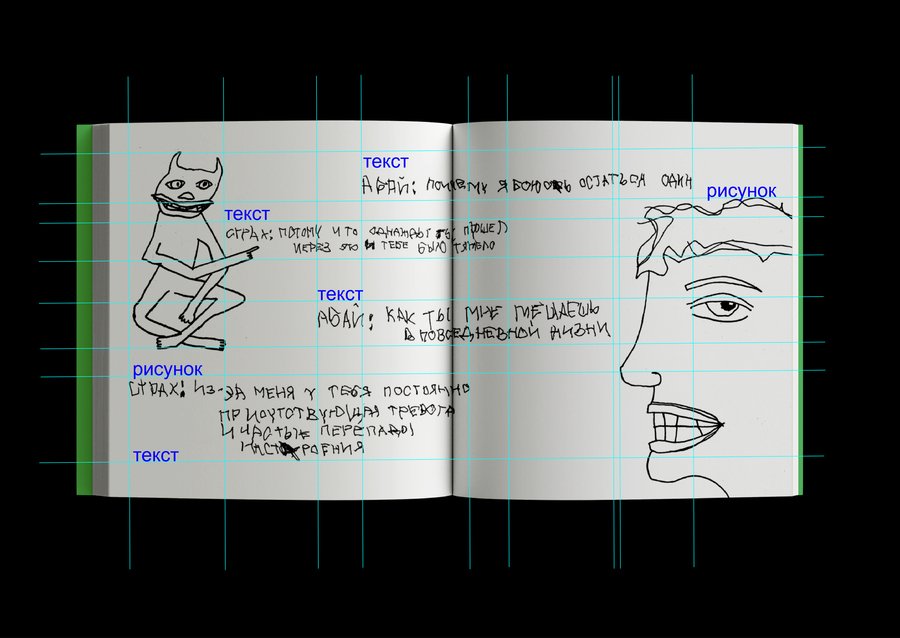 текст
Абай: почему я боюсь остаться один
рисунок
текст
Страх: потому что однажды ты прошел
через это и тебе было тяжело
текст
Абай: как ты мне мешаешь
в повседневной жизни
рисунок
Страх: из-за меня у тебя постоянно
присутствующая тревога
и частые перепады
настроения
текст